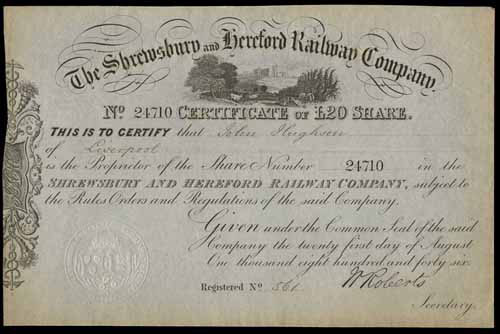 The Shrewsbury and Hereford Railway Company.
No 24710 CERTIFICATE OF £20 SHARE.
THIS IS TO CERTIFY that John Hughson
of Liverpool
is the Proprietor of the Share Number 24710 in the
SHREWSBURY AND HEREFORD RAILWAY COMPANY, subject to
the Rules Orders and Regulations of the said Company.
Given under the Common Seal of the said
Company the twenty first day of August
One thousand eight hundred and forty six.
Registered No 561
W Roberts
Secretary.